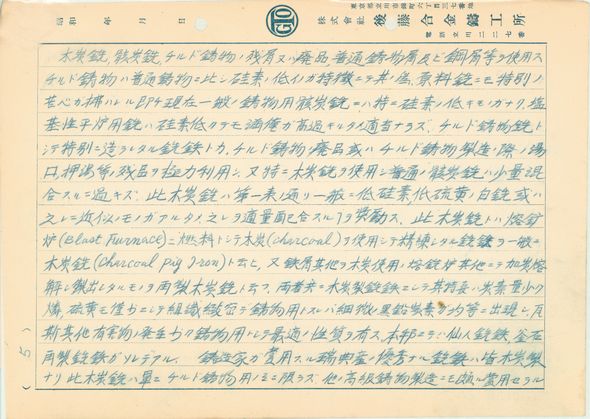 東京都立川市錦町六丁目三七番地
昭和 年 月 日
GTO
株式會社 後藤合金鑄工所
電話立川二二二七番
木炭銑、骸炭銑、チルド鋳物ノ残屑又ハ廃品普通鋳物屑及ビ鋼屑等ヲ使用ス
チルド鋳物ハ普通鋳物ニ比シ硅素ノ低イノガ特徴ニテ其ノ為、原料銑ニモ特別ノ
苦心ガ拂ハレル即チ現在一般ノ鋳物用骸炭銑ニハ特ニ硅素ノ低キモノガナク、塩
基性平炉用銑ハ硅素低カラモ満俺ガ高過キルタメ適当ナラズ、チルド鋳物銑ト
シテ特別ニ造ラレタル銑鉄トカ、チルド鋳物ノ廃品或ハチルド鋳物製造ノ際ノ湯
口、押湯等ノ残品ヲ極力利用シ、又特ニ木炭銑ヲ使用シ普通ノ骸炭銑ハ少量混
合スルニ過キズ、此木炭銑ハ第一表ノ通リ一般ニ低硅素低硫黄ノ白銑或ハ
之レニ近似ノモノガアルタメ、之レヲ適量配合スル
此木炭銑トハ熔鉱
炉(Blast Furnace)ニ燃料トシテ木炭(charcoal)ヲ使用シテ精煉シタル銑鉄ヲ一般ニ
木炭銑(Charcoal Pig Iron)ト云ヒ、又鉄屑其他ヲ木炭使用ノ熔銑炉其他ニテ加炭熔
解シ製出シタルモノヲ再製木炭銑ト云フ、両者共ニ木炭製銑鉄ニシテ其特長ハ炭素量少ク
燐、硫黄モ僅少ニシテ組織緻密デ鋳物用トスレバ細微ノ黒鉛炭素ガ均等ニ出現シ、瓦
斯其他有害物ノ発生モナク鋳物用トシテ最適ノ性質ヲ有ス、本邦ニテハ仙人銑鉄、釜石
再製銑鉄ガソレデアル、 鋳造家ガ賞用スル瑞典産ノ優秀ナル銑鉄ハ皆木炭製
ナリ此木炭銑ハ単ニチルド鋳物用ノミニ限ラズ、他ノ高級鋳物製造ニモ頗ル賞用セラル
(5)